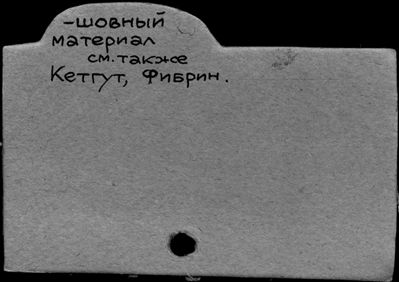 -шовный
материал
см. также
Кетгут, Фибрин.